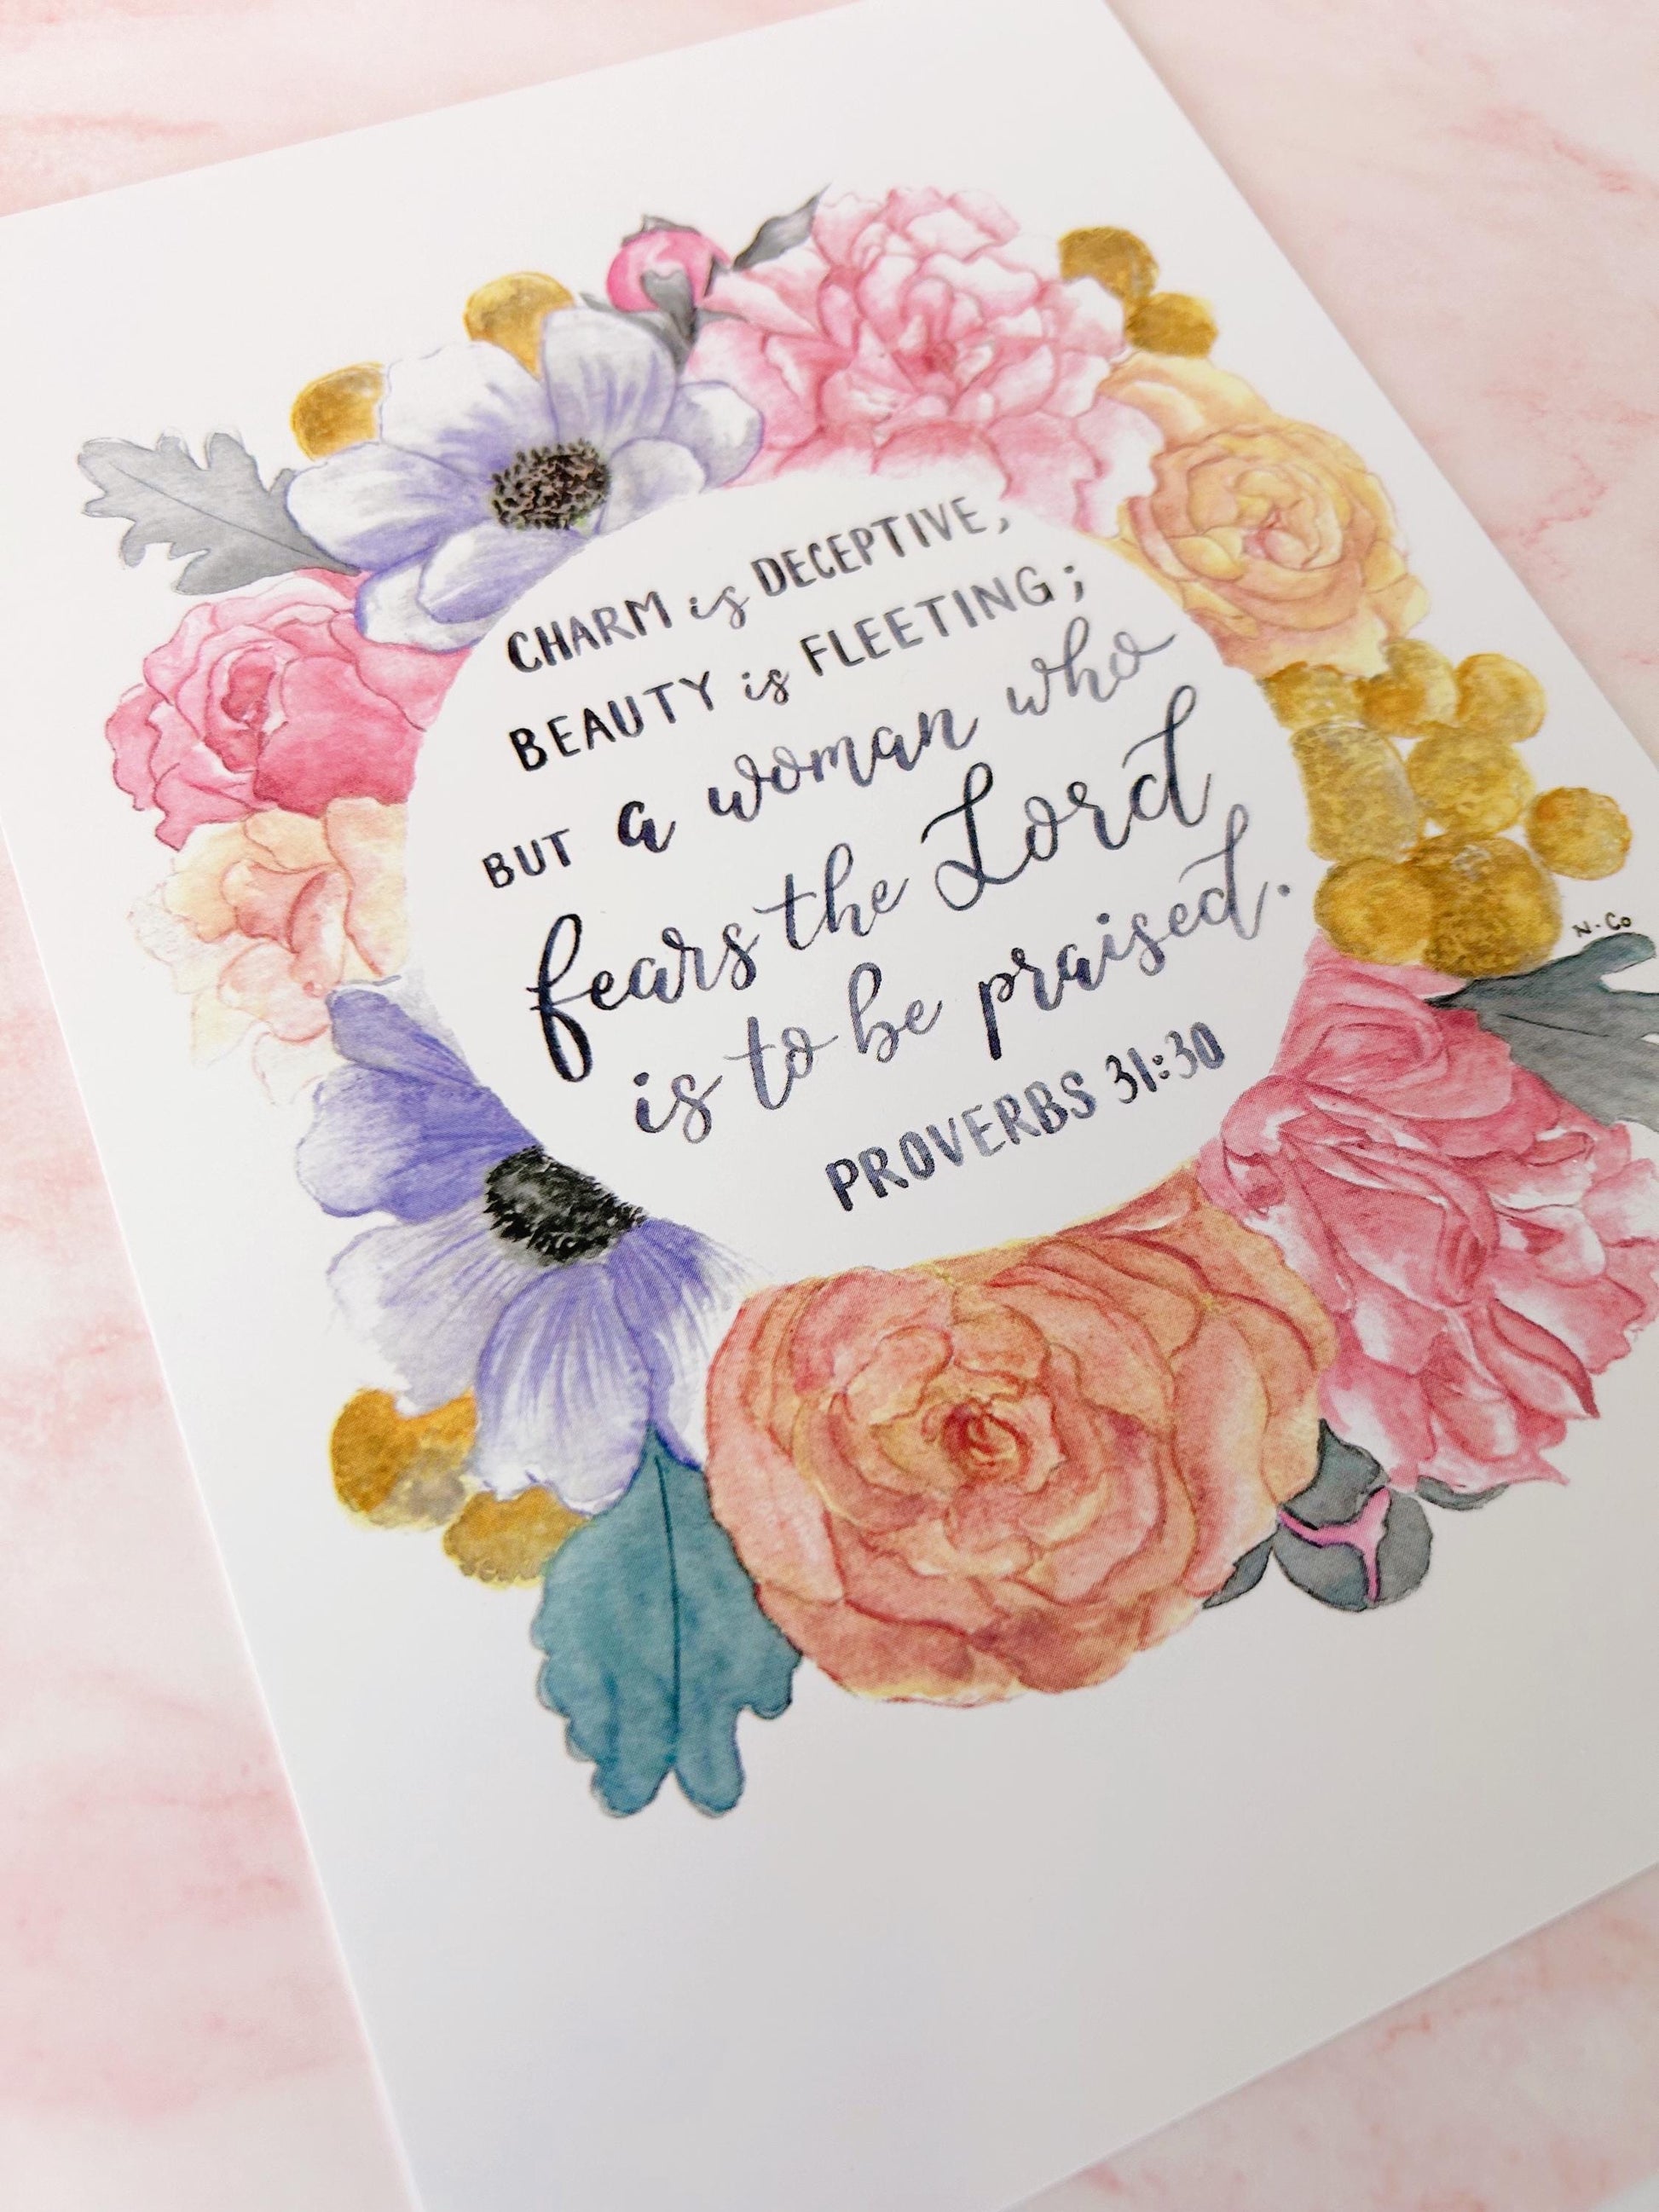 CHARM is DECEPTIVE,
BEAUTY is FLEETING;
BUT a woman who
fears the Lord
is to be praised.
PROVERBS 31:30
N-Co